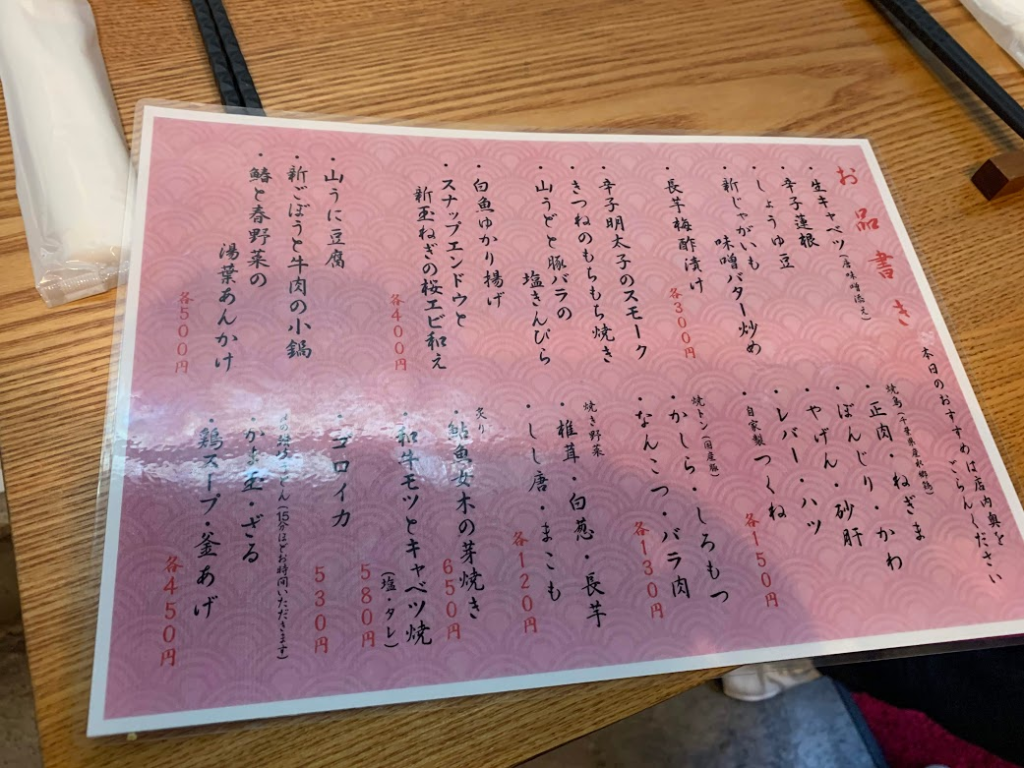 お品書き
本日のおすすめは店内奥を
ごらんください
・生キャベツ(唐味噌添え)
・辛子蓮根
・しょうゆ豆
・新じゃがいも
味噌バター炒め
・長芋梅酢漬け
各300円
・辛子明太子のスモーク
・きつねのもちもち焼き
・山うどと豚バラの
塩きんぴら
・白魚ゆかり揚げ
・スナップエンドウと
新玉ねぎの桜エビ和え
各400円
・山うに豆腐
・新ごぼうと牛肉の小鍋
・鰆と春野菜の
湯葉あんかけ
各500円
焼鳥(千葉県産水郷鶏)
・正肉・ねぎま
・ぼんじり・かわ
・やげん・砂肝
・レバー・ハツ
・自家製つくね
各150円
焼トン(国産豚)
・かしら・しろもつ
・なんこつ・バラ肉
各130円
焼き野菜
・椎茸・白葱・長芋
・しし唐・まこも
各120円
炙り
・鮎魚女木の芽焼き
650円
・和牛モツとキャベツ焼
(塩・タレ)
580円
・ゴロイカ
530円
うどん(15分ほどお時間いただきます)
・かま玉・ざる
・鶏スープ・釜あげ
各450円